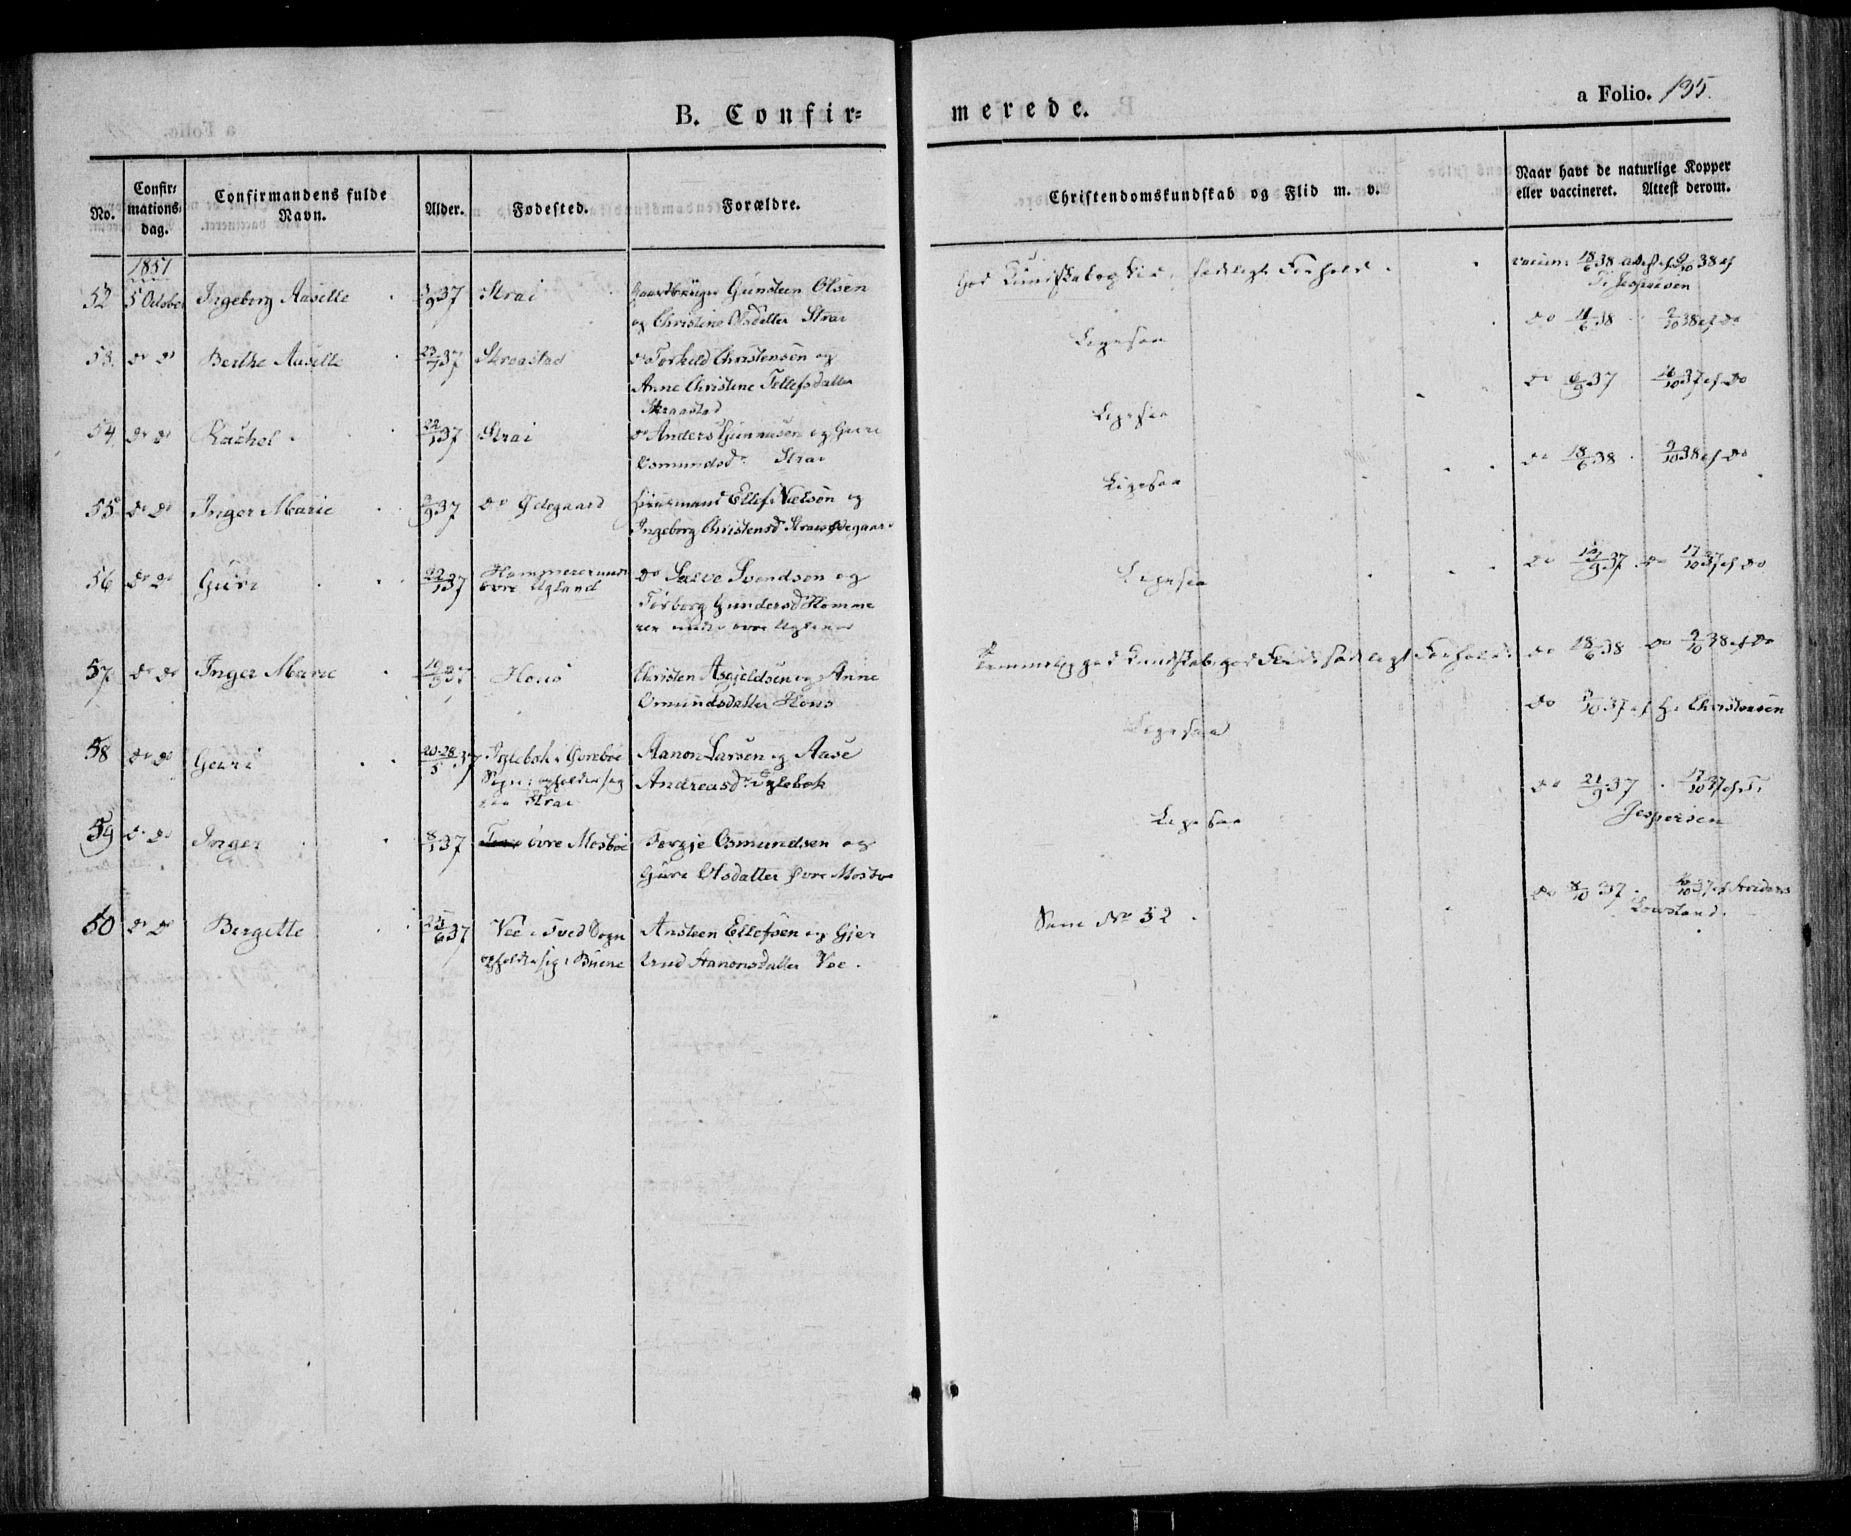 B. Confir=
merede.
a Folio. 135.
No.
Confir=
mations=
dag.
Confirmandens fulde
Navn.
Alder.
Fødested.
Forældre.
Christendomskundskab og Flid m. v.
Naar havt de naturlige Kopper
eller vaccineret. Attest derom.
1851
52 5 October Ingeborg Aaselle 37 Strai Gaardbruger Gunsteen Olsen
og Christine Olsdatter Strai
God Kundskab og Flid, sædeligt Forhold.
vaccin: 18/6 38 att. ef 9/10 38 af
T. Jespersen
53. do do Berthe Aaselle 37 Skraastad do Torkild Christensen og
Anne Christine Tellefsdatter
Skraastad
Ligesaa
do 11/6 38 9/10 38 af do
54 do do Rachel 22/1 37 Strai do Anders Gunnusen og Guri
Osmundsd. Strai
Ligesaa
do 6/9 37 16/10 37 af do
55 do do Inger Marie 37 do Ødegaard Huusmand Ellef Nielsen og
Ingeborg Christensd. Strai Ødegaard
Ligesaa
do 18/6 38 9/10 38 af do
56 do do Guri 22/1 37 Hommereren
øvre Ugland
do Salve Svendsen og
Torborg Gundersd. Homme
Ligesaa
do 37 do 17/10 37 af do
57 do do Inger Marie 37 Hous Christen Asgjeldsen og Anne
Omundsdatter Hous
Temmelig god Kundskab, god Flid, sædeligt Forhold.
do 18/6 38 do 9/10 38 af do
58 do do Guri 20-28/5 37 Iglebæk i Øvrebøe
Sogn; opholder sig
paa Strai
Aanon Larsen og Aase
Andreasd. Iglebæk
Ligesaa
do 37 af H. Christensen
59 do do Inger 8/1 37 øvre Mosbøe Tergje Osmundsen og
Guri Olsdatter Øvre Mosbø
Ligesaa
do 21/9 37 17/10 37 af T.
Jespersen
60 do do Bergette 25/6 37 Vee i Tved Sogn
opholder sig i Buene
Ansteen Ellefsen og Gjer
trud Aanonsdatter Vee.
Som No 52.
do 8/10 37. 37 af